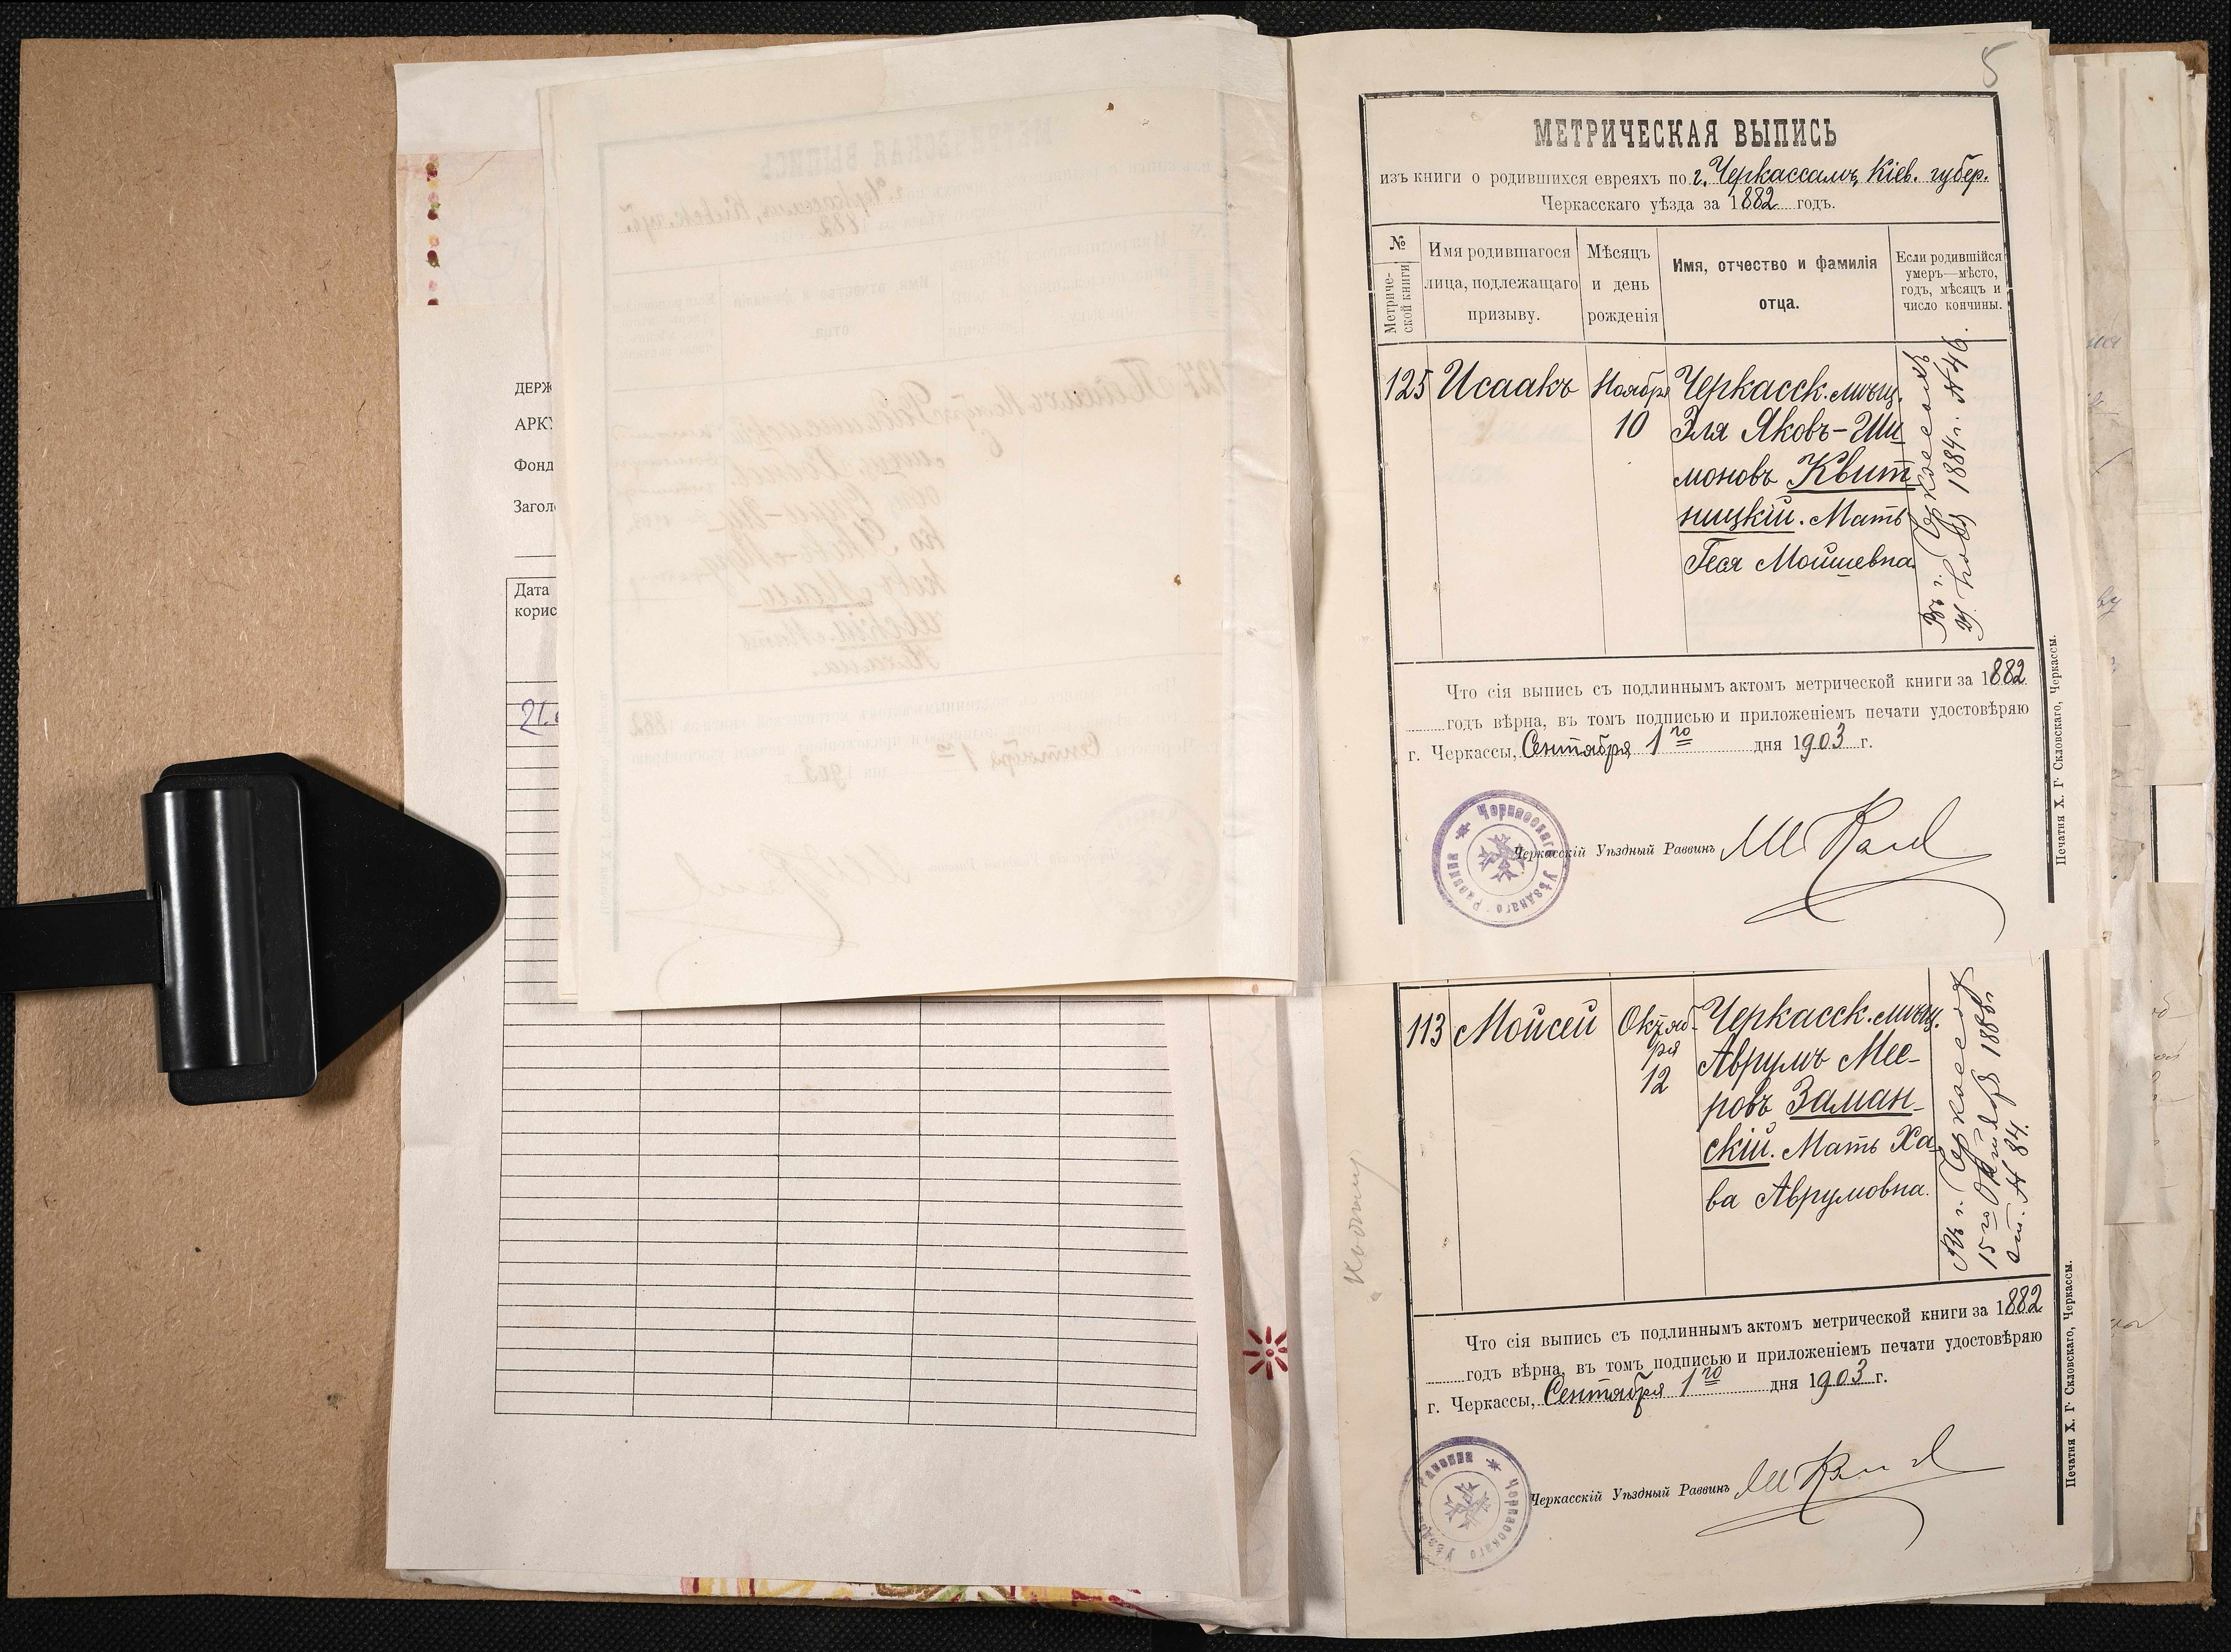 ДЕРЖ
АРК
Фонд
Загол
Дата
корис
21.
5
МЕТРИЧЕСКАЯ ВЫПИСЬ
изъ книги о родившихся евреяхъ по г. Черкассамъ, Кіев. губер.
Черкасскаго уѣзда за 1882 годъ.
№
Метриче-
ской книги
Имя родившагося
лица, подлежащаго
призыву.
Мѣсяцъ
и день
рожденія
Имя, отчество и фамилія
отца.
Если родившійся
умеръ—мѣсто,
годъ, мѣсяцъ и
число кончины.
125 Исаакъ Ноября Черкасск. мѣщ.
10 Эля Яковъ-Ши
моновъ Квит
ницкій. Мать
Геся Мойшевна.
Въ г. Черкассахъ
1884 г. № 46.
Что сія выпись съ подлиннымъ актомъ метрической книги за 1882
годъ вѣрна, въ томъ подписью и приложеніемъ печати удостовѣряю
г. Черкассы, Сентября 1го дня 1903 г.
Черкасскаго Уѣзднаго Раввина
Черкасскій Уѣздный Раввинъ
Печатня Х. Г. Скловскаго, Черкассы.
113 Мойсей Октяб- Черкасск. мѣщ.
ря Аврумъ Мее-
12 ровъ Заман-
скій. Мать Ха
ва Аврумовна.
Въ г. Черкассахъ
15го Октября 188
№ 84.
Что сія выпись съ подлиннымъ актомъ метрической книги за 1882
годъ вѣрна, въ томъ подписью и приложеніемъ печати удостовѣряю
г. Черкассы, Сентября 1го дня 1903 г.
Черкасскаго Уѣзднаго Раввина
Черкасскій Уѣздный Раввинъ
Печатня Х. Г. Скловскаго, Черкассы.